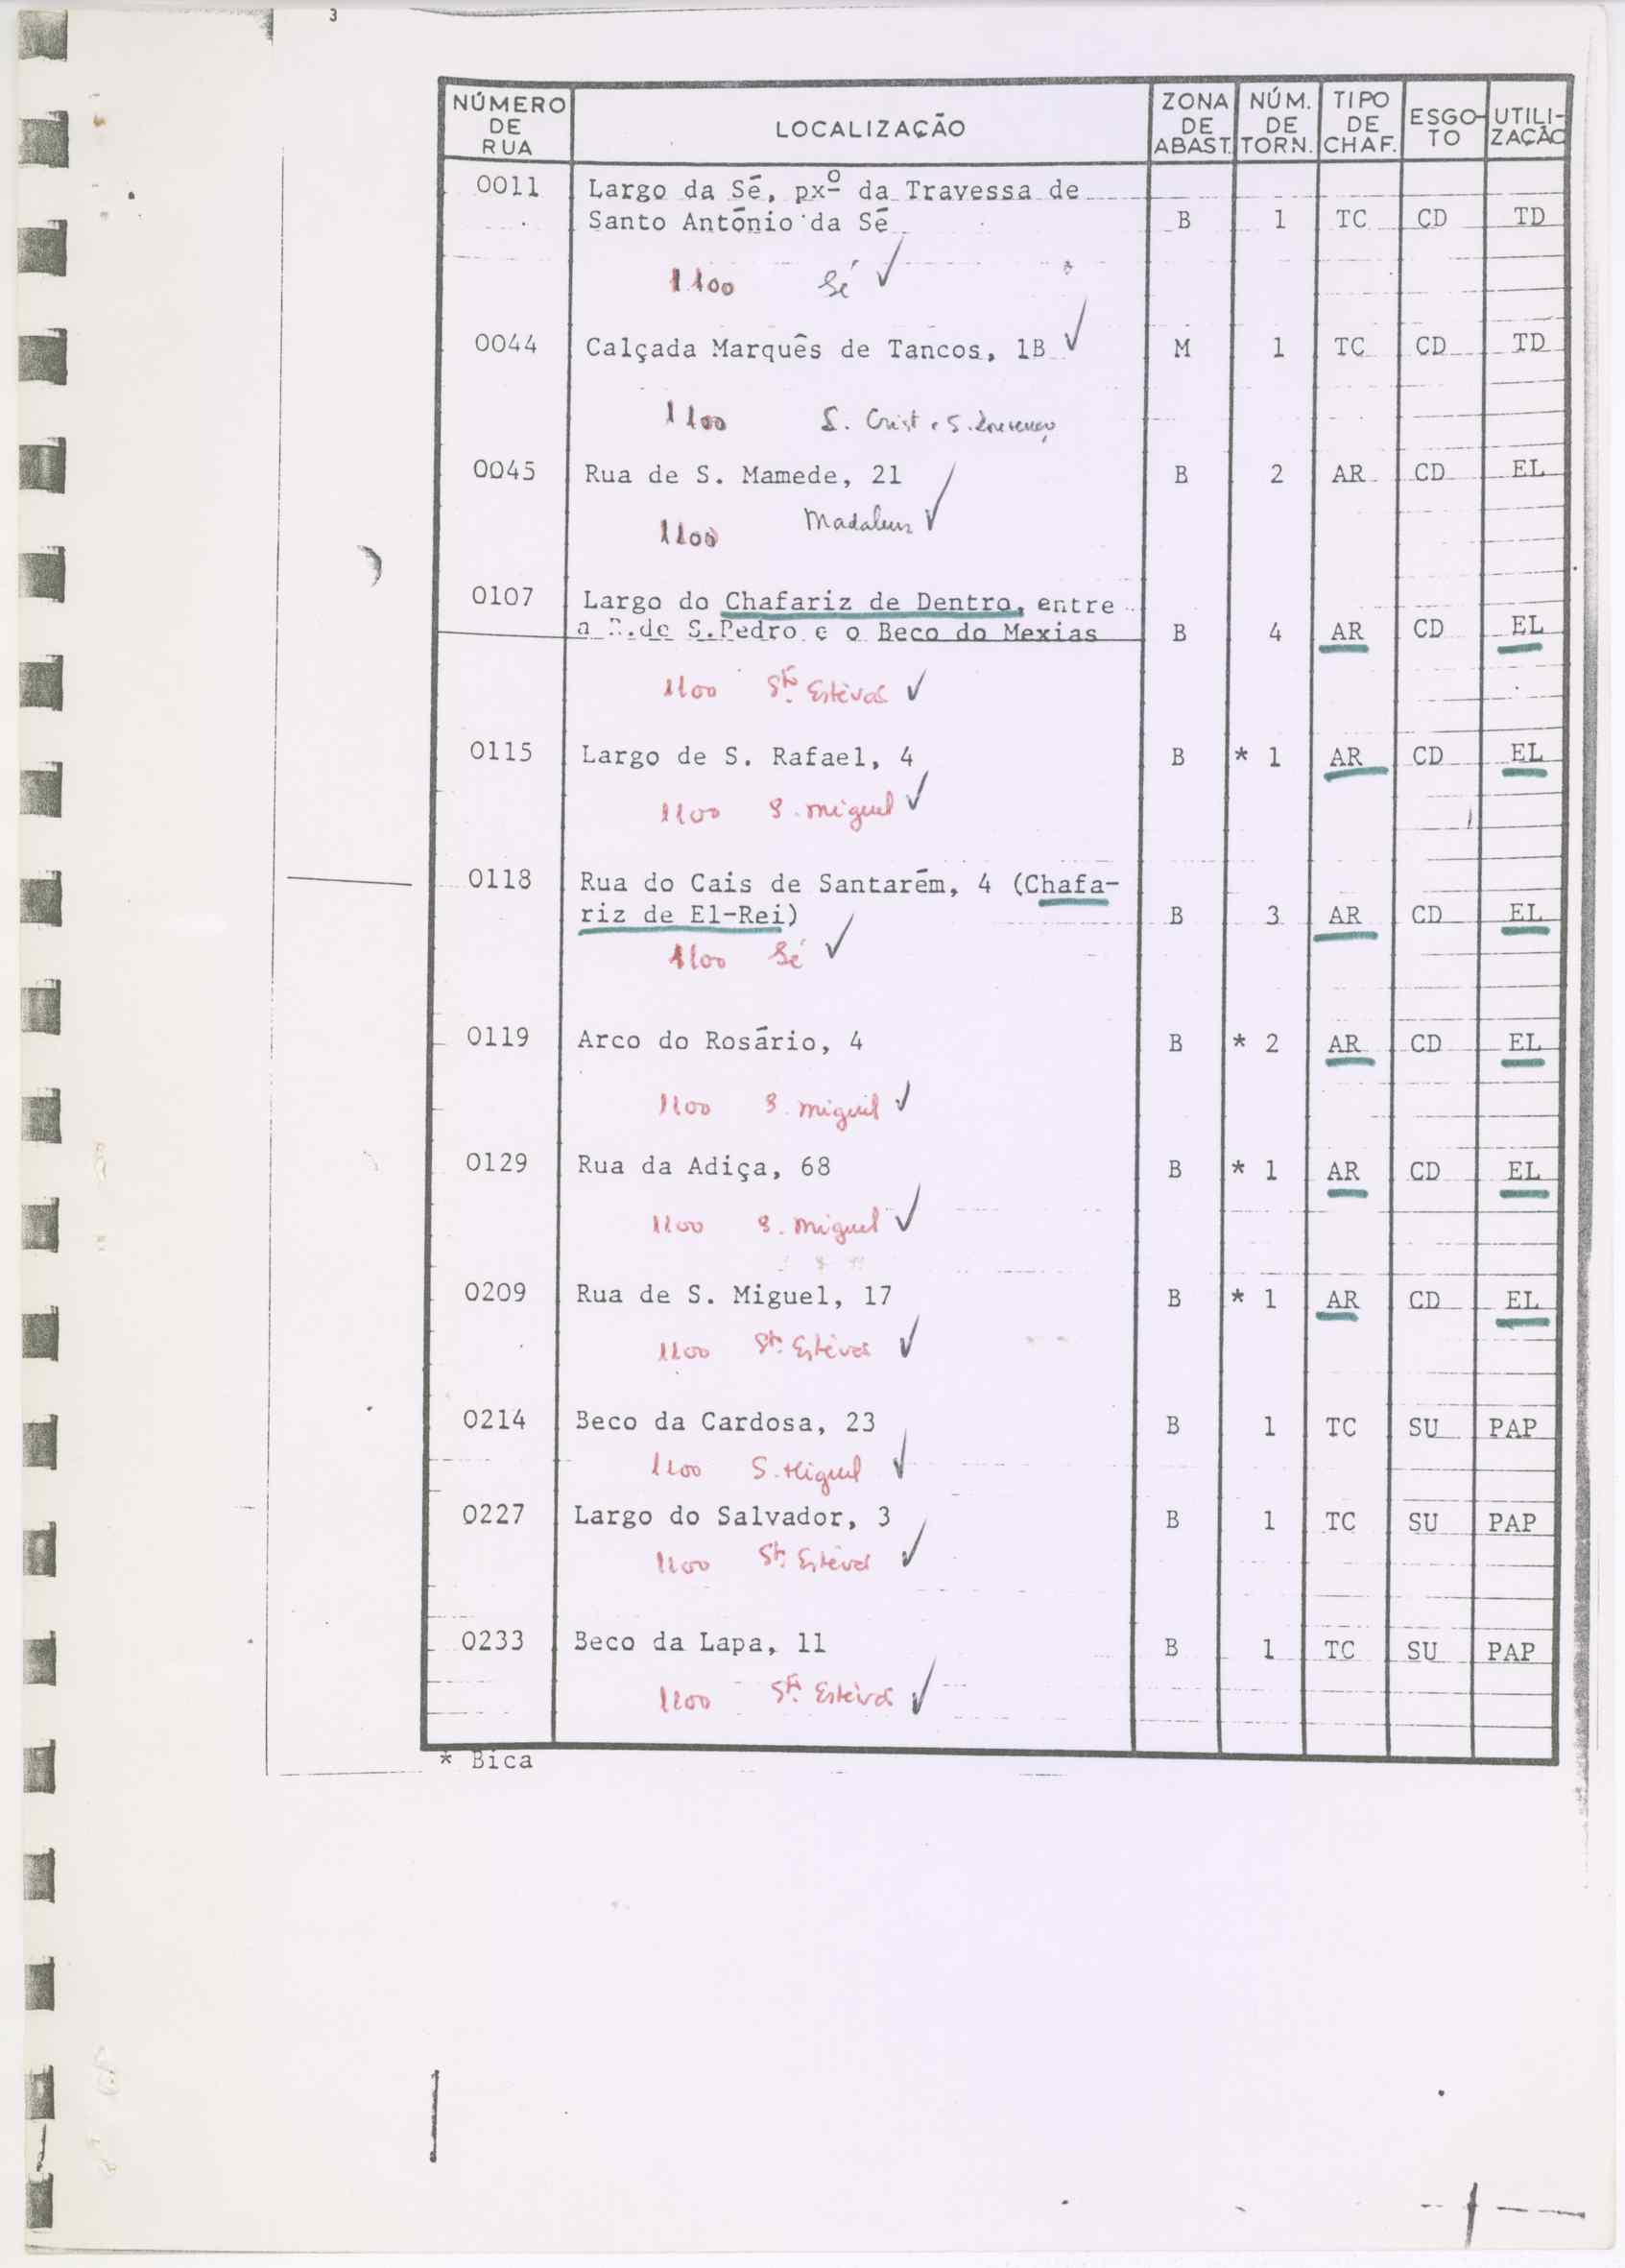 3
NÚMERO DE RUA LOCALIZAÇÃO ZONA DE ABAST. NÚM. DE TORN. TIPO DE CHAF. ESGO-TO UTILI-ZAÇÃO
0011 Largo da Sé, pxº da Travessa de
Santo António da Sé B 1 TC CD TD
1100 Sé ✓
0044 Calçada Marquês de Tancos, 1B ✓ M 1 TC CD TD
1100 S. Crist e S. Lourenço
0045 Rua de S. Mamede, 21 B 2 AR CD EL
1100 Madalena ✓
0107 Largo do Chafariz de Dentro, entre
a R.de S.Pedro e o Beco do Mexias B 4 AR CD EL
1100 Stº Estêvão ✓
0115 Largo de S. Rafael, 4 B * 1 AR CD EL
1100 S. Miguel ✓
0118 Rua do Cais de Santarém, 4 (Chafa-
riz de El-Rei) B 3 AR CD EL
1100 Sé ✓
0119 Arco do Rosário, 4 B * 2 AR CD EL
1100 S. Miguel ✓
0129 Rua da Adiça, 68 B * 1 AR CD EL
1100 S. Miguel ✓
0209 Rua de S. Miguel, 17 B * 1 AR CD EL
1100 Stº Estêvão ✓
0214 Beco da Cardosa, 23 B 1 TC SU PAP
1100 S. Miguel ✓
0227 Largo do Salvador, 3 B 1 TC SU PAP
1100 Stº Estêvão ✓
0233 Beco da Lapa, 11 B 1 TC SU PAP
1100 Stº Estêvão ✓
* Bica